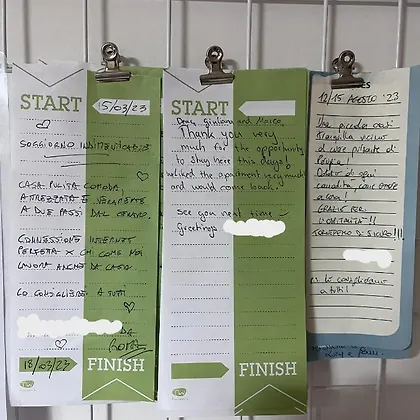 START
15/03/23
SOGGIORNO INDIMENTICABILE
CASA PULITA COMODA,
ATTREZZATA E
A DUE PASSI DAL CENTRO.
CONNESSIONE INTERNET
PERFETTA X CHI COME NOI
LAVORA ANCHE DA CASA
LO CONSIGLIEREI A TUTTI
DA
ROMA
18/03/23
FINISH
START
Dear Giuliana and Marco,
Thank you very
much for the opportunity
to stay here this days!
liked the apartment very much
and would come back.
See you next time
Greetings
FINISH
12/15 AGOSTO '23
Una piccola oasi
tranquilla vicino
al
Dotata di ogni
comodità, come essere
a casa!
GRAZIE PER
L'OSPITALITÀ!!
TORNEREMO DI SICURO!!!
consigliamo
a tutti!